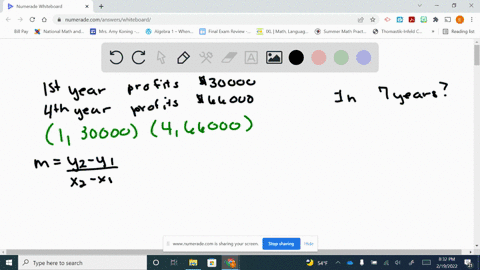 Numerade Whiteboard
numerade.com/answers/whiteboard/
Bill Pay
National Math and...
Mrs. Amy Koning -...
Algebra 1 – Whown...
Final Exam Review -...
IXL | Math, Languag...
Summer Math Pract...
Thomastik-Infeld C...
Reading list
1st year profits $30000
4th year profits $66000
In 7 years?
(1, 30000) (4, 66000)
m = y2-y1
x2-x1
www.numerade.com is sharing your screen.
Stop sharing
Hide
Type here to search
54°F
8:32 PM
2/19/2022